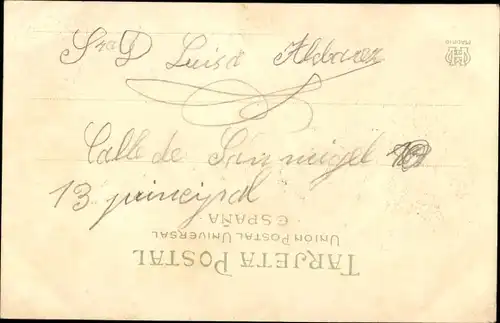 Sra D Luisa Aldavez
Calle de San miguel
13 principal
TARJETA POSTAL
UNION POSTAL UNIVERSAL
· ESPAÑA ·
MADRID